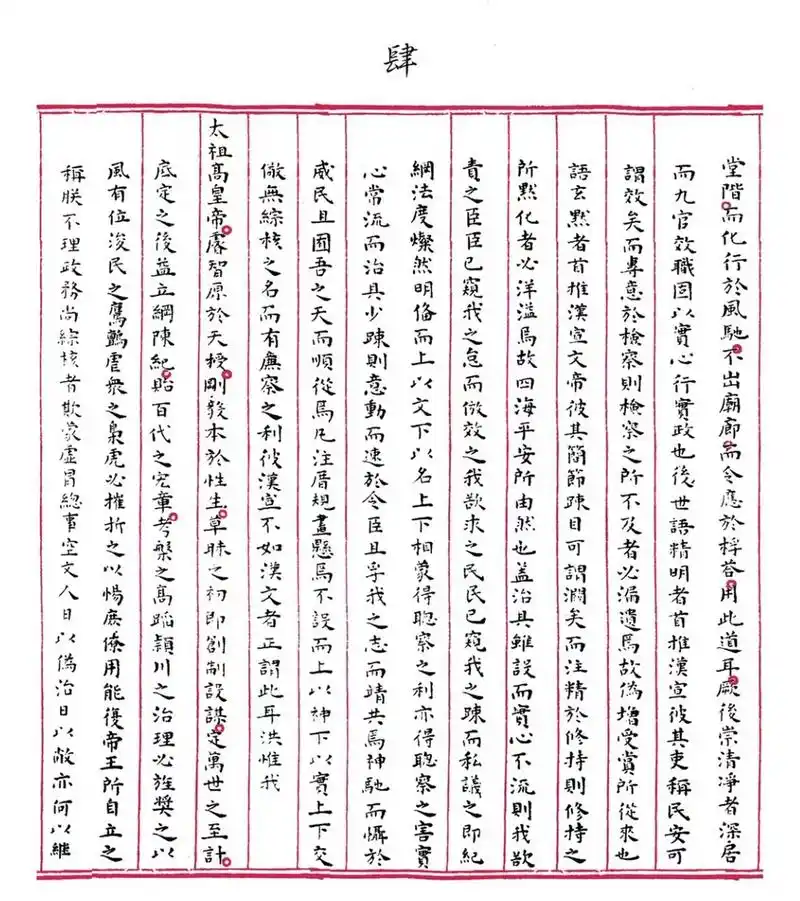 肆
堂階而化行於風馳不出廟廊而令應於桴荅用此道耳厥後崇清凈者深居
而九官效職固以實心行實政也後世語精明者首推漢宣彼其吏稱民安可
謂效矣而專意於檢察則檢察之所不及者必漏遺焉故偽增受賞所從來也
語玄默者首推漢宣文帝彼其簡節疎目可謂濶矣而注精於修持則修持之
所默化者必洋溢焉故四海平安所由然也盖治具雖設而實心不流則我欲
責之臣臣已窺我之怠而倣效之我欲求之民民已窺我之疎而私議之即紀
綱法度燦然明俻而上以文下以名上下相蒙得聦察之利亦得聦察之害實
心常流而治具少疎則意動而速於令臣且孚我之志而靖共焉神馳而懾於
威民且囿吾之天而順從焉凡注厝規畫懸焉不設而上以神下以實上下交
儆無綜核之名而有廉察之利彼漢宣不如漢文者正謂此耳洪惟我
太祖髙皇帝睿智原於天授剛毅本於性生草昧之初即創制設謀定萬世之至計
底定之後益立綱陳紀貽百代之宏章考槃之髙蹈潁川之治理必旌奬之以
風有位浚民之鷹鸇虐衆之梟虎必摧折之以惕庶僚用能復帝王所自立之
稱朕不理政務尚綜核者欺蒙虛冒總事空文人日以偽治日以敝亦何以繼